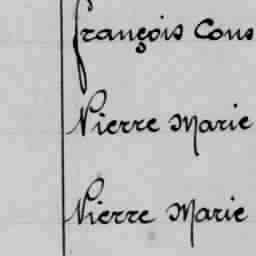 françois Cons
Pierre Marie
Pierre Marie